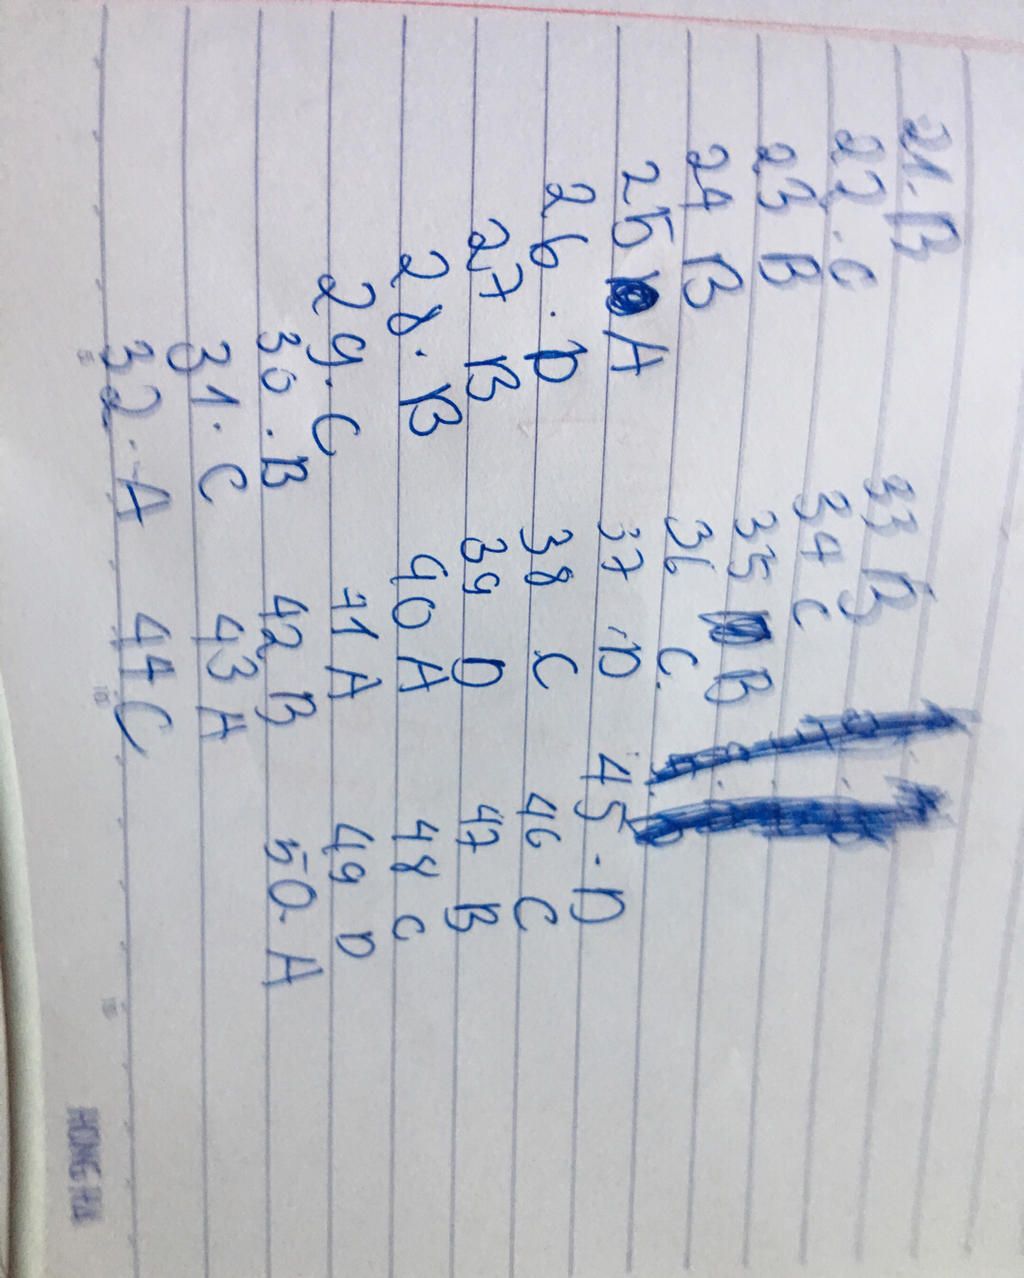 21. B
22. C
23 B
24 B
25 A
26. D
27 B
28. B
29. C
30. B
31. C
32. A
33 B
34 C
35 B
36 C.
37 D
38 C
39 D
40 A
41 A
42 B
43 A
44 C
45. D
46 C
47 B
48 C
49 D
50. A
HONG HA